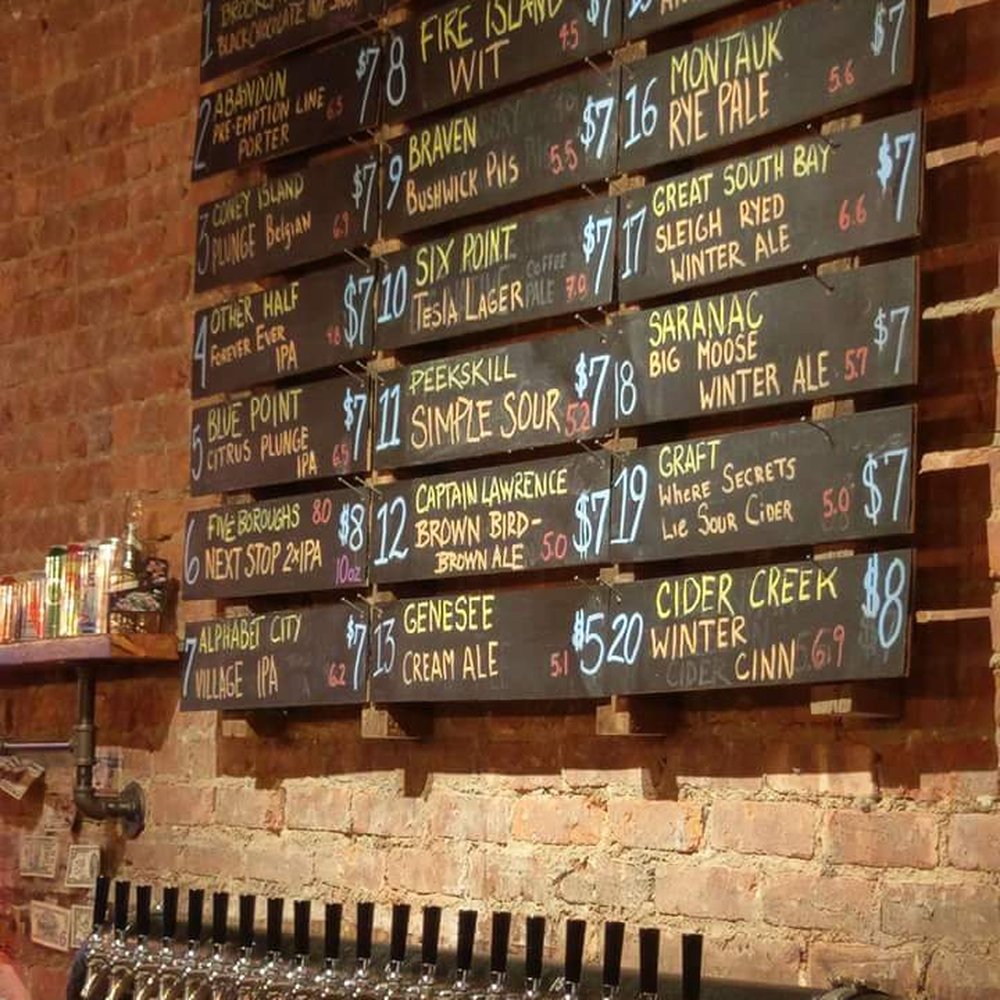 1 BROOKLYN
BLACK CHOCOLATE
2 ABANDON $7
PRE-EMPTION LINE 6.5
PORTER
3 CONEY ISLAND $7
PLUNGE Belgian 6.9
4 OTHER HALF $7
FOREVER EVER
IPA
5 BLUE POINT $7
CITRUS PLUNGE
IPA 6.5
6 FIVE BOROUGHS 8.0 $8
NEXT STOP 2xIPA 10oz
7 ALPHABET CITY $7
VILLAGE IPA 6.2
8 FIRE ISLAND $7
WIT 4.5
9 BRAVEN $7
BUSHWICK PILS 5.5
10 SIX POINT $7
TESLA LAGER 7.0
COFFEE
PALE
11 PEEKSKILL $7
SIMPLE SOUR 5.2
12 CAPTAIN LAWRENCE $7
BROWN BIRD-
BROWN ALE 5.0
13 GENESEE $5
CREAM ALE 5.1
16 MONTAUK $7
RYE PALE 5.6
17 GREAT SOUTH BAY $7
SLEIGH RYED 6.6
WINTER ALE
18 SARANAC $7
BIG MOOSE
WINTER ALE 5.7
19 GRAFT $7
WHERE SECRETS
LIE SOUR CIDER 5.0
20 CIDER CREEK $8
WINTER
CINN 6.9
CIDER